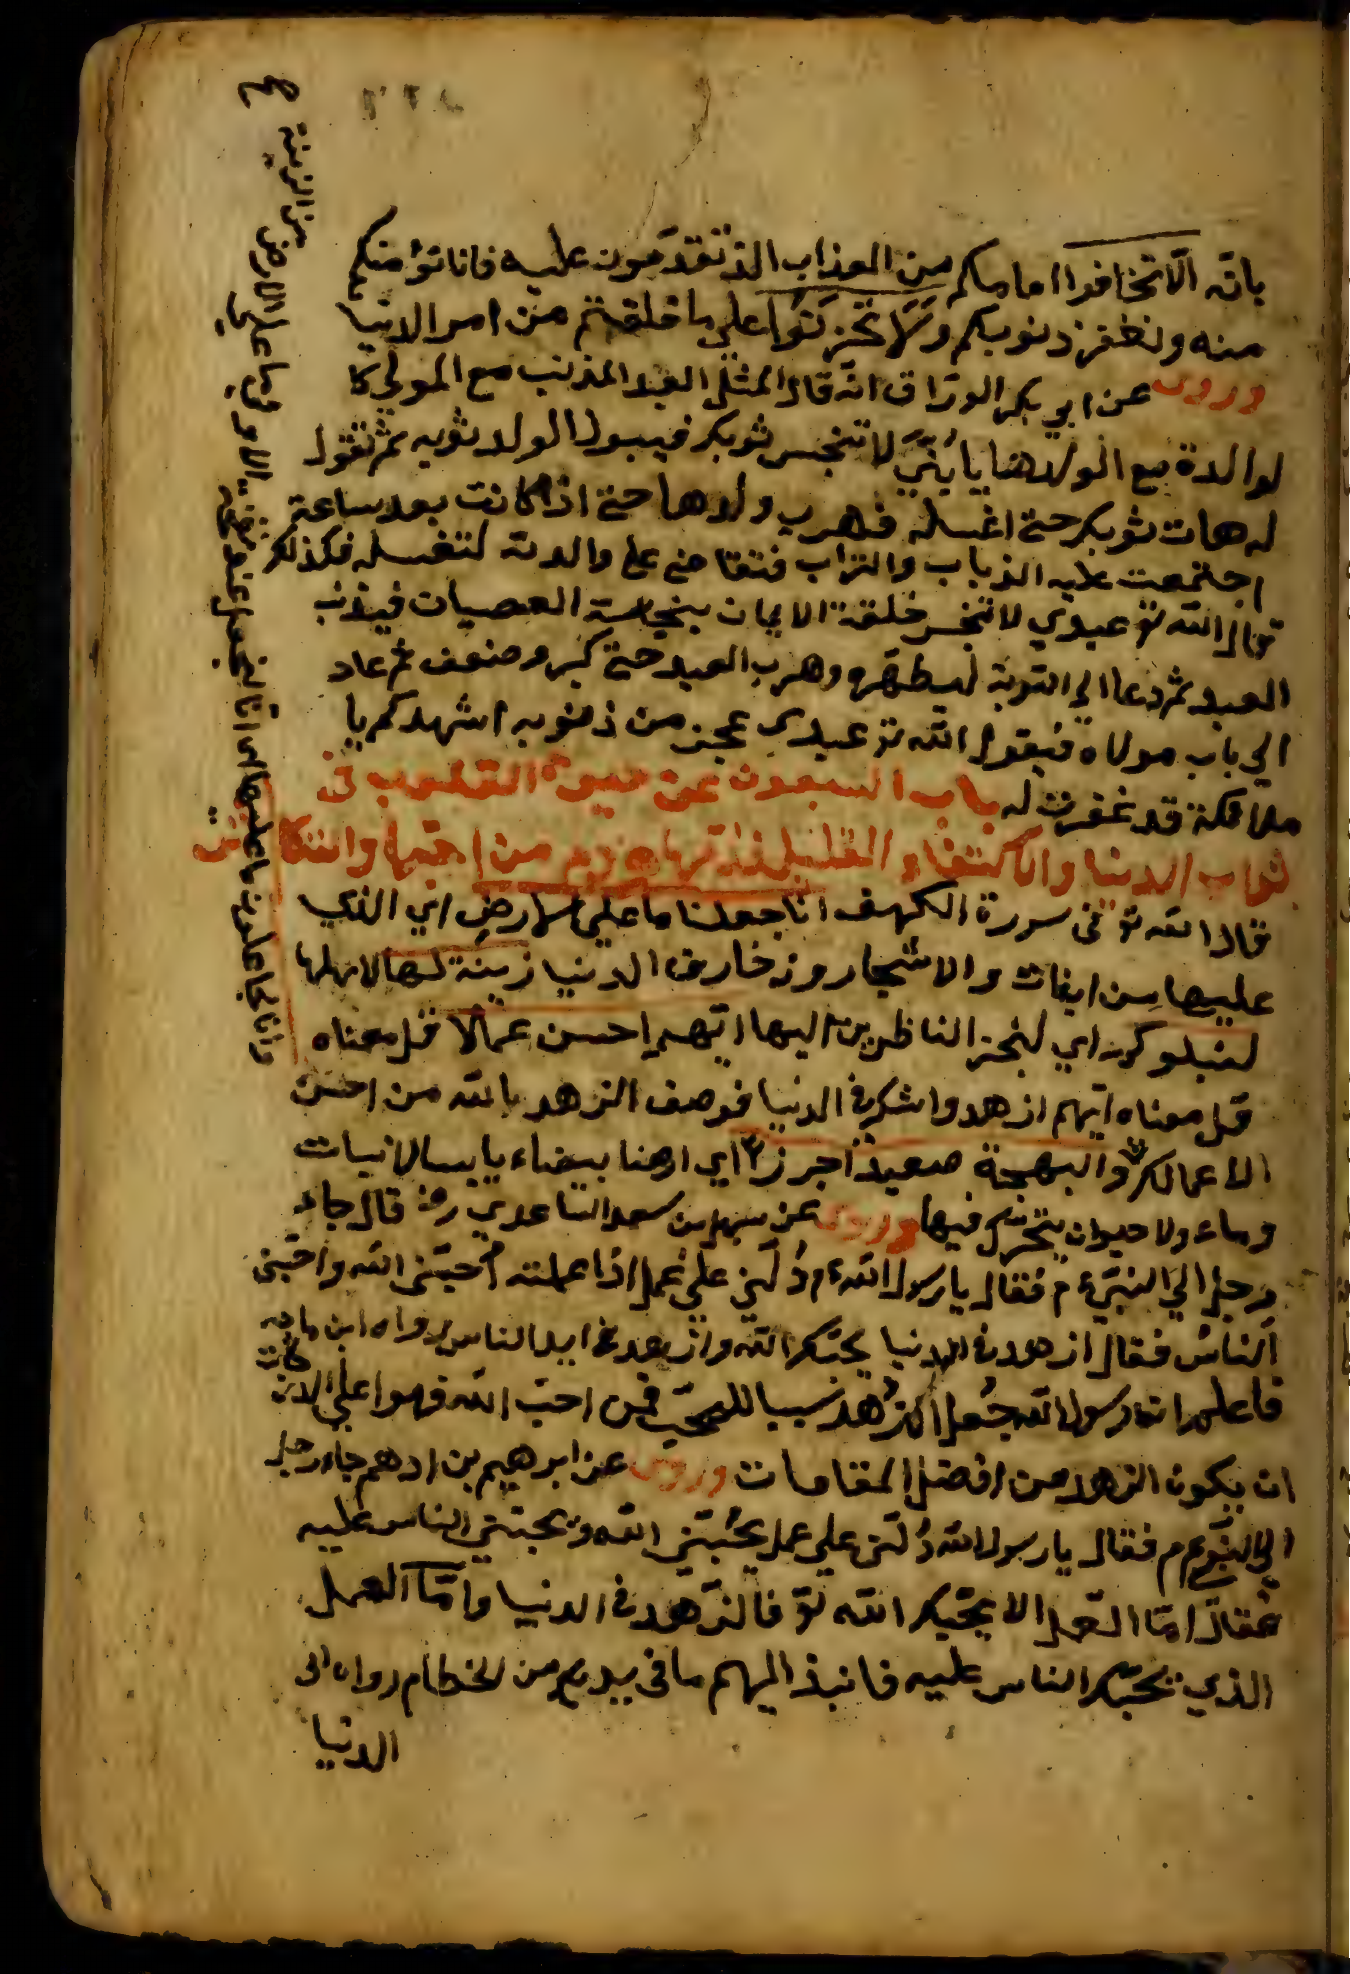 بانّه الّا تخافوا امامكم من العذاب الذ تقدمون عليه فانا نؤمنكم
منه ونغفر ذنوبكم ولا تحزنوا على ما خلفتم من امر الدنيا
وروى عن ابي بكر الوراق انه قال المثل العبد المذنب مع المولى كا
لوالدة مع الولدها يا بني لا تنجس ثوبك فيبول الولد ثوبه ثم تقول
له هات ثوبك حتى اغسله فهرب ولدها حتى اذا كانت بعد ساعة
اجتمعت عليه الذباب والتراب فتقاضى على والدته لتغسله فكذلك
قال الله تع عبدي لا تنجس خلقة الايمان بنجاسة العصيان فيذنب
العبد ثم دعا الى التوبة ليطهره وهرب العبد حتى كبر وضعف ثم عاد
الى باب مولاه فيقول الله تع عبدى عجز من ذنوبه اشهدكم يا
ملائكة قد غفرت له باب السبعون عن حيوة القلوب فى
ثواب الدنيا والاكتفاء والقليل
قال الله تع فى سورة الكهف انا جعلنا ما على الارض اي الذي
عليها من النبات والاشجار وزخارف الدنيا زينة لها لاهلها
لنبلوكم اي لنخبر الناظرين اليها ايهم احسن عملا قيل معناه
قيل معناه ايهم ازهد واشكر في الدنيا فوصف الزهد بالله من احسن
الاعمال والبهجة صعيدا جرزا اي ارضا بيضاء يابسا لا نبات
وماء ولا حيوان يتحرك فيها وروى عن سهل بن سعد الساعدي رض قال جاء
رجل الى النبي عم فقال يا رسول الله عم دُلّني على عمل اذا عملته احبّني الله واحبّني
الناسُ فقال ازهد في الدنيا يحبّك الله وازهد في ايد الناس رواه ابن ماجه
فاعلم ان رسول الله جعل الزُهد سببا للمحبّ فمن احبّ الله فهو اعلى
ان يكون الزهد من افضل المقامات وروى عن ابرهيم بن ادهم جاء رجل
الى النبي عم فقال يا رسول الله دُلّني على عمل يُحبّني الله ويحبّني الناس عليه
فقال امّا العمل الا يحبّك الله تع فالزهد في الدنيا وامّا العمل
الذي يحبّك الناس عليه فانبذ اليهم ما في يدك من الحطام رواه ابن
الدنيا
من الزينة
وانا لجاعلون ما عليها